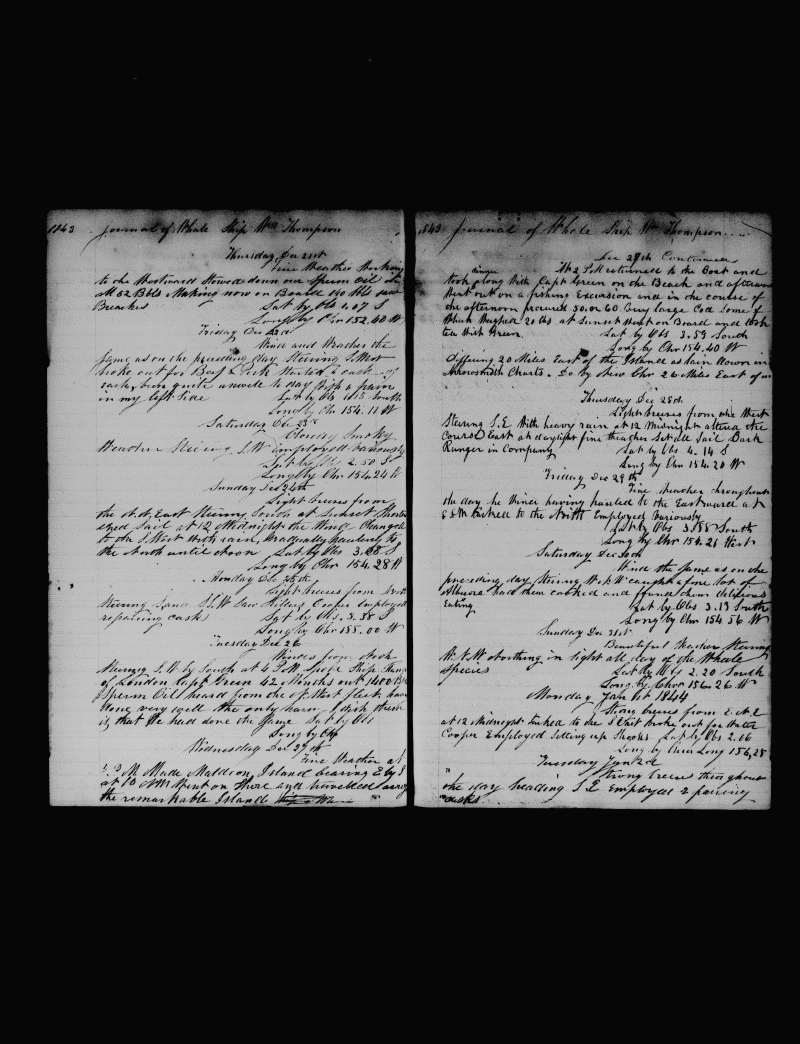 1843 Journal of Whale Ship Wm Thompson
Thursday Dec 21st
Fine Weather Working
to the Westward Stowed down our Sperm Oil
52 Bbls Making now on Board 140 Bbls
Breaches Lat by Obs 1.07 S
Long by Chr 152.40 W
Friday Dec 22nd
Wind and Weather the
same as on the preceding day Steering S. West
broke out for Beef & Pork Started 2 cask of
each, been quite unwell to day With a pain
in my left side Lat by Obs 1.15 South
Long by Chr 154.11 W
Saturday Dec 23rd
Cloudy Smoky
Weather Steering S.W Employed Variously
Lat by Obs 2.50 S
Long by Chr 154.24 W
Sunday Dec 24th
Light breezes from
the N.East Steering South at Sunset Short
ened Sail at 12 Midnight the Wind Changed
to the S.West With rain, Gradually hauling to
the North until Noon Lat by Obs 3.08 S
Long by Chr 154.28 W
Monday Dec 25th
Light breezes from
Steering S.S.W Saw Killers Cooper Employed
repairing casks Lat by Obs 3.38 S
Long by Chr 155.00 W
Tuesday Dec 26
Winds from
Steering S.W by South at 4 P.M Spoke Ship
of London Capt Green 42 Months out 1400 Bbls
Sperm Oil heard from the
done very well the only harm I wish them
is that We had done the Same Lat by Obs
Long by Chr
Wednesday Dec 27th
Fine Weather at
P M Made Malden Island bearing E by S
at 10 AM Went on Shore and travelled
the remarkable Island
1843 Journal of Whale Ship Wm Thompson
Dec 27th Continued
At 2 P.M returned to the Boat and
dinner
took along With Capt Green on the Beach and afterward
Went out on a fishing Excursion and in the course of
the afternoon procured 50 or 60 Very large Cod Some of
Which Weighed 20 lbs at Sunset Went on Board and took
tea With Green Lat by Obs 3.59 South
Long by Chr 154.40 W
differing 20 Miles East of the Island as lain down in
Arrowsmith Charts. Do by New Chr 26 Miles East of
Thursday Dec 28th
Light breezes from the West
Steering S.E With heavy rain at 12 Midnight altered the
Course East at daylight fine Weather Set all Sail Bark
Ranger in Company Lat by Obs 4.14 S
Long by Chr 154.20 W
Friday Dec 29th
Fine Weather throughout
the day the Wind having hauled to the Eastward at
6 AM tacked to the North Employed Variously
Lat by Obs 3.58 South
Long by Chr 154.21 West
Saturday Dec 30th
Winds the same as on the
preceding day Steering N.N.W caught a fine lot of
Albicore had them cooked and found them delicious
Eating Lat by Obs 3.13 South
Long by Chr 154 56 W
Sunday Dec 31st
Beautiful Weather Steering
N.N.W Nothing in sight all day of the Whale
Species Lat by Obs 2.20 South
Long by Chr 156 26 W
Monday Jan 1st 1844
Strong breezes from E.N.E
at 12 Midnight tacked to the S East broke out for Water
Cooper Employed Setting up Shooks Lat by Obs 2.06
Long by Chr Long 156,28
Tuesday Jan 2d
Strong breeze throughout
the day heading S.E Employed repairing
casks.